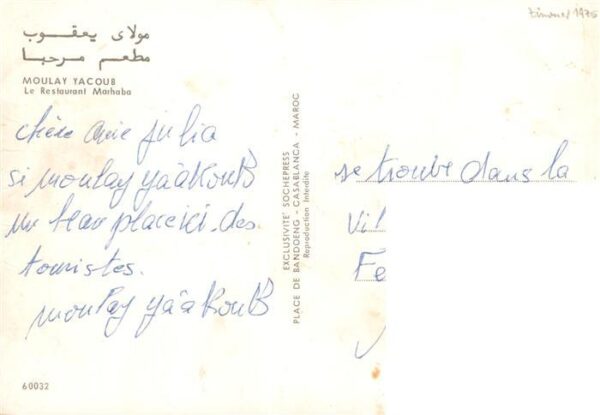 timone/ 1975
مولاي يعقوب
مطعم مرحبا
MOULAY YACOUB
Le Restaurant Marhaba
chère amie julia
si moulay yaâkouB
un beau place ici des
touristes.
moulay yaâkouB
60032
EXCLUSIVITÉ SOCHEPRESS
PLACE DE BANDOENG - CASABLANCA - MAROC
Reproduction Interdite
se trouve dans la
Vil
Fe